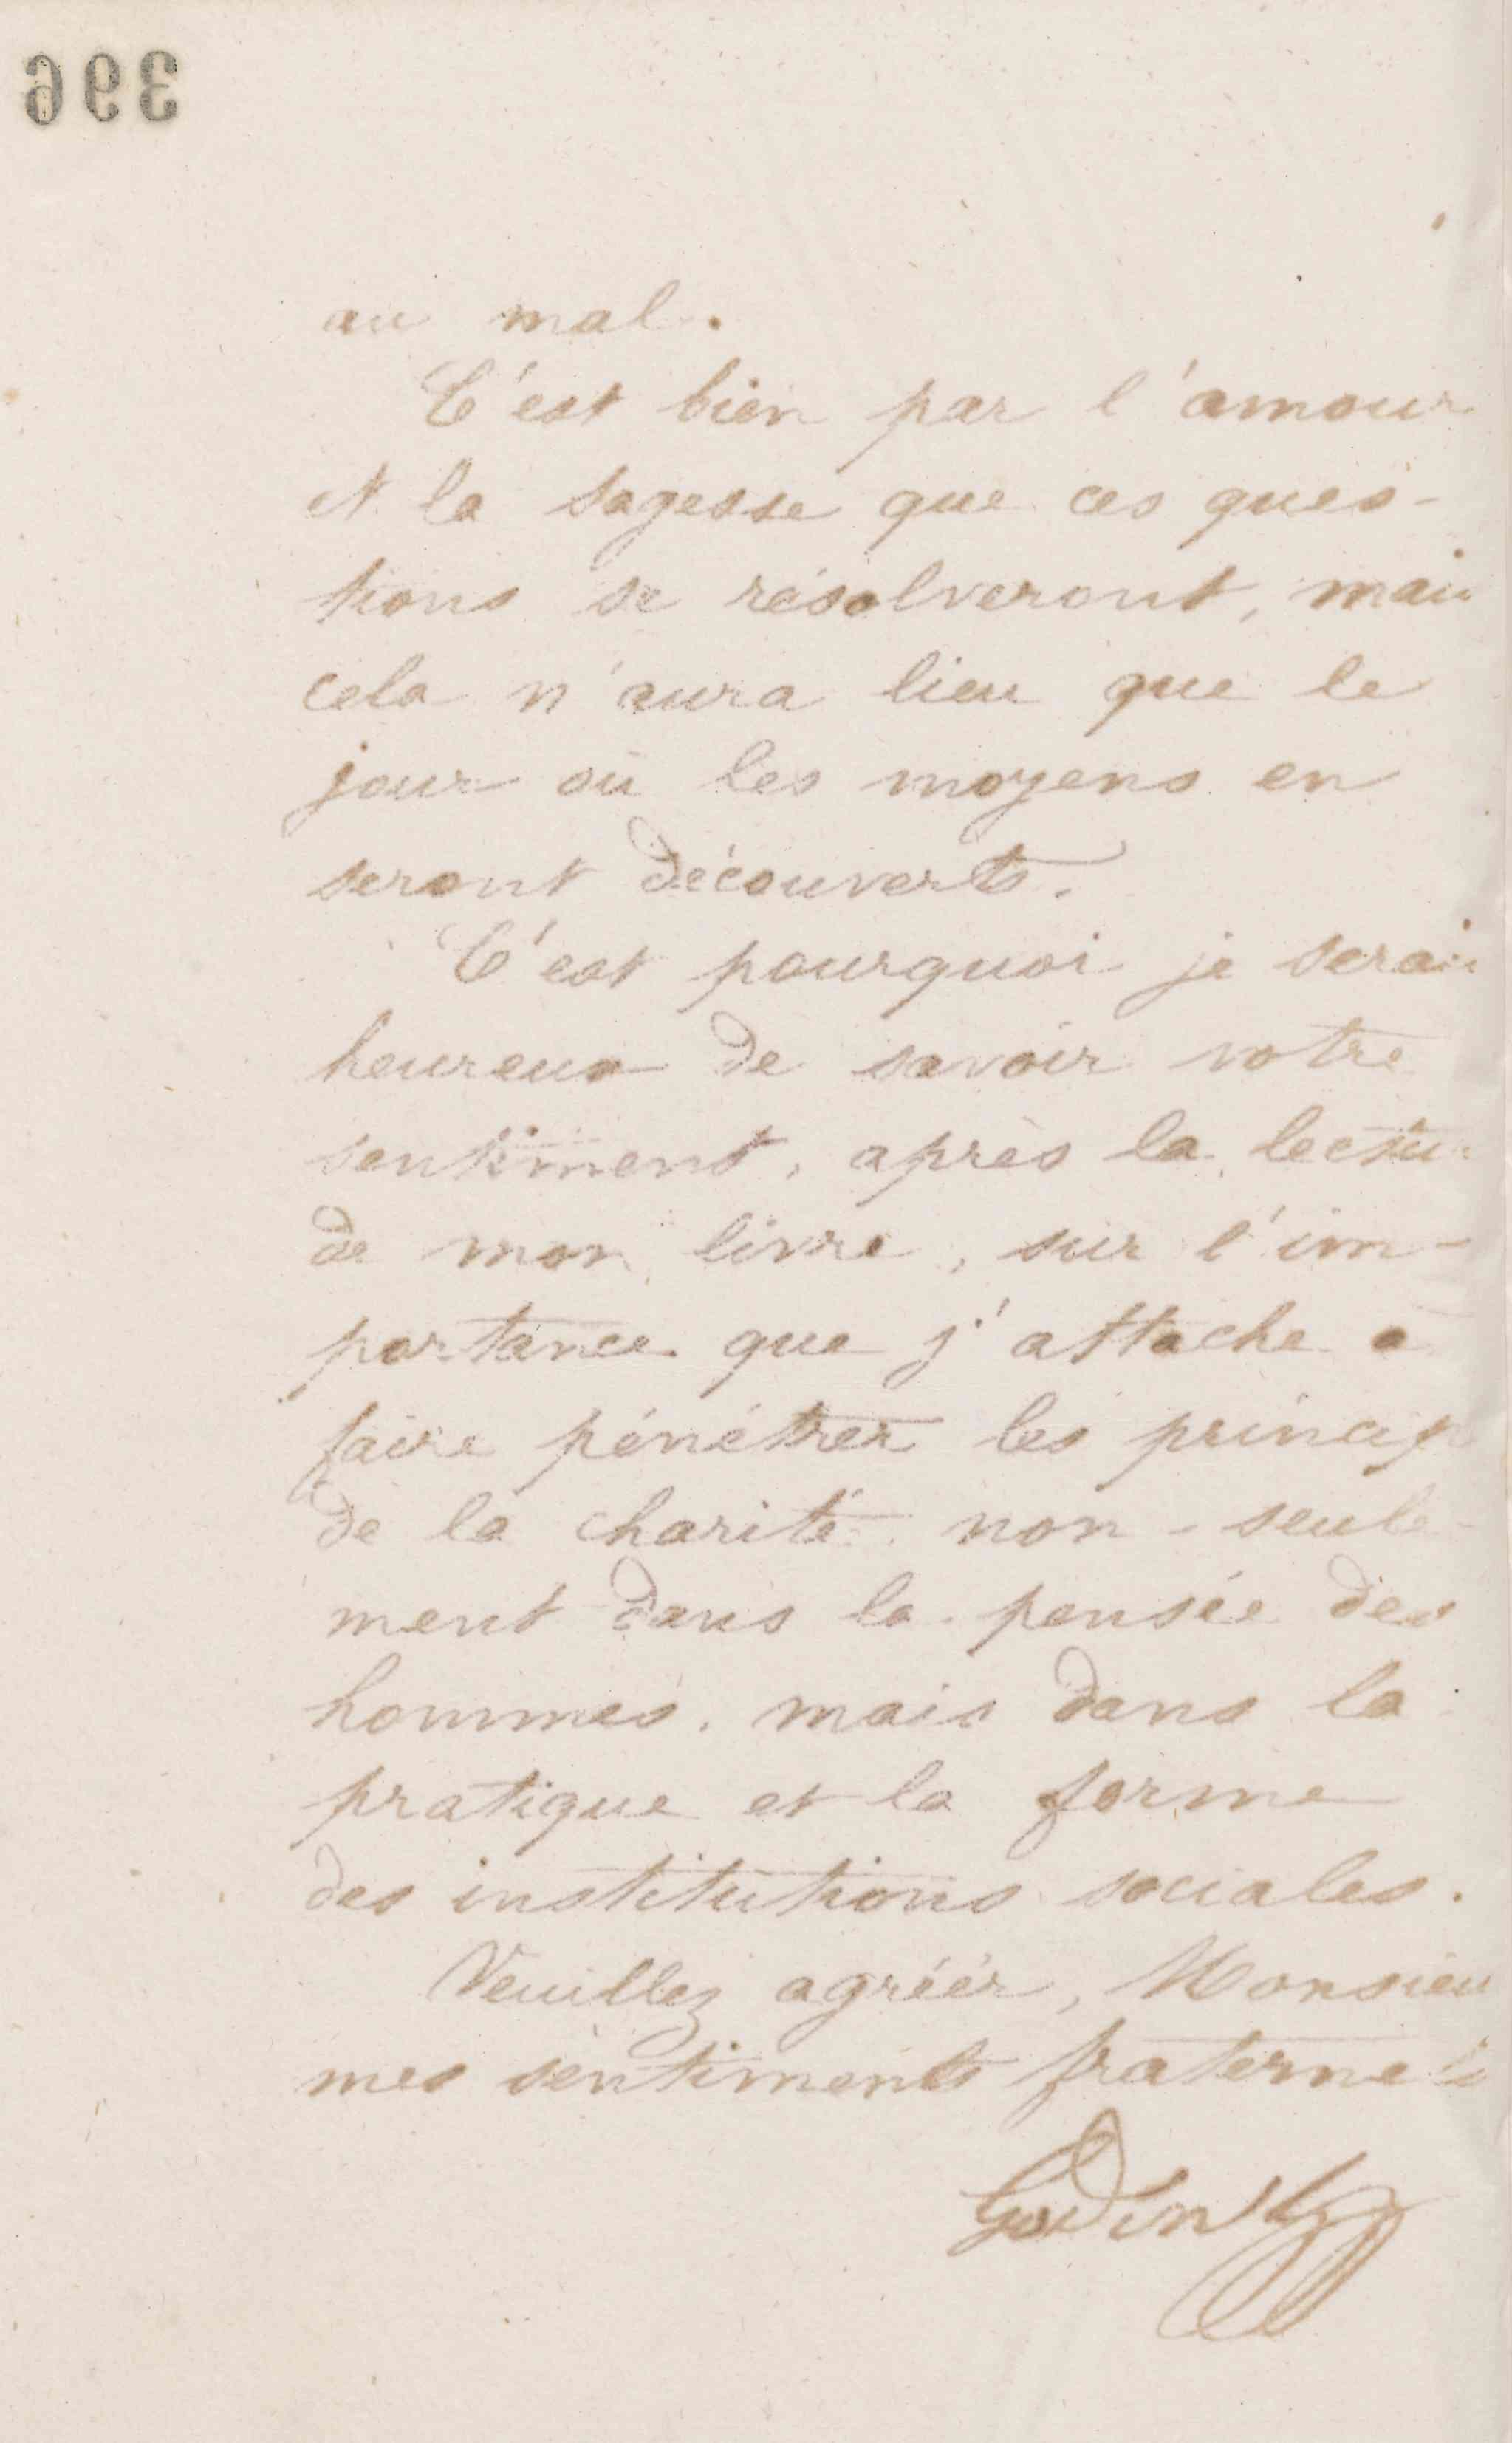 396
au mal.
C'est bien par l'amour
et la sagesse que ces ques-
tions se résolveront, mais
cela n'aura lieu que le
jour où les moyens en
seront découverts.
C'est pourquoi je serais
heureux de savoir votre
sentiment, après la lectu
de mon livre, sur l'im-
portance que j'attache a
faire pénétrer les princip
de la charité non-seule-
ment dans la pensée des
hommes, mais dans la
pratique et la forme
des institutions sociales.
Veuillez agréer, Monsieu
mes sentiments fraternels
Godin